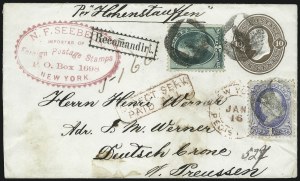 Pr "Hohenstauffen"
N. F. SEEBECK
IMPORTER OF
Foreign Postage Stamps
P. O. Box 1098
NEW YORK.
Recomandirt.
DIRECT SERV.
PAID
NEW YORK
JAN
16
Herrn Heinr. Werner
Adr. F. M. Werner
Deutsch Crone
i/ Preussen